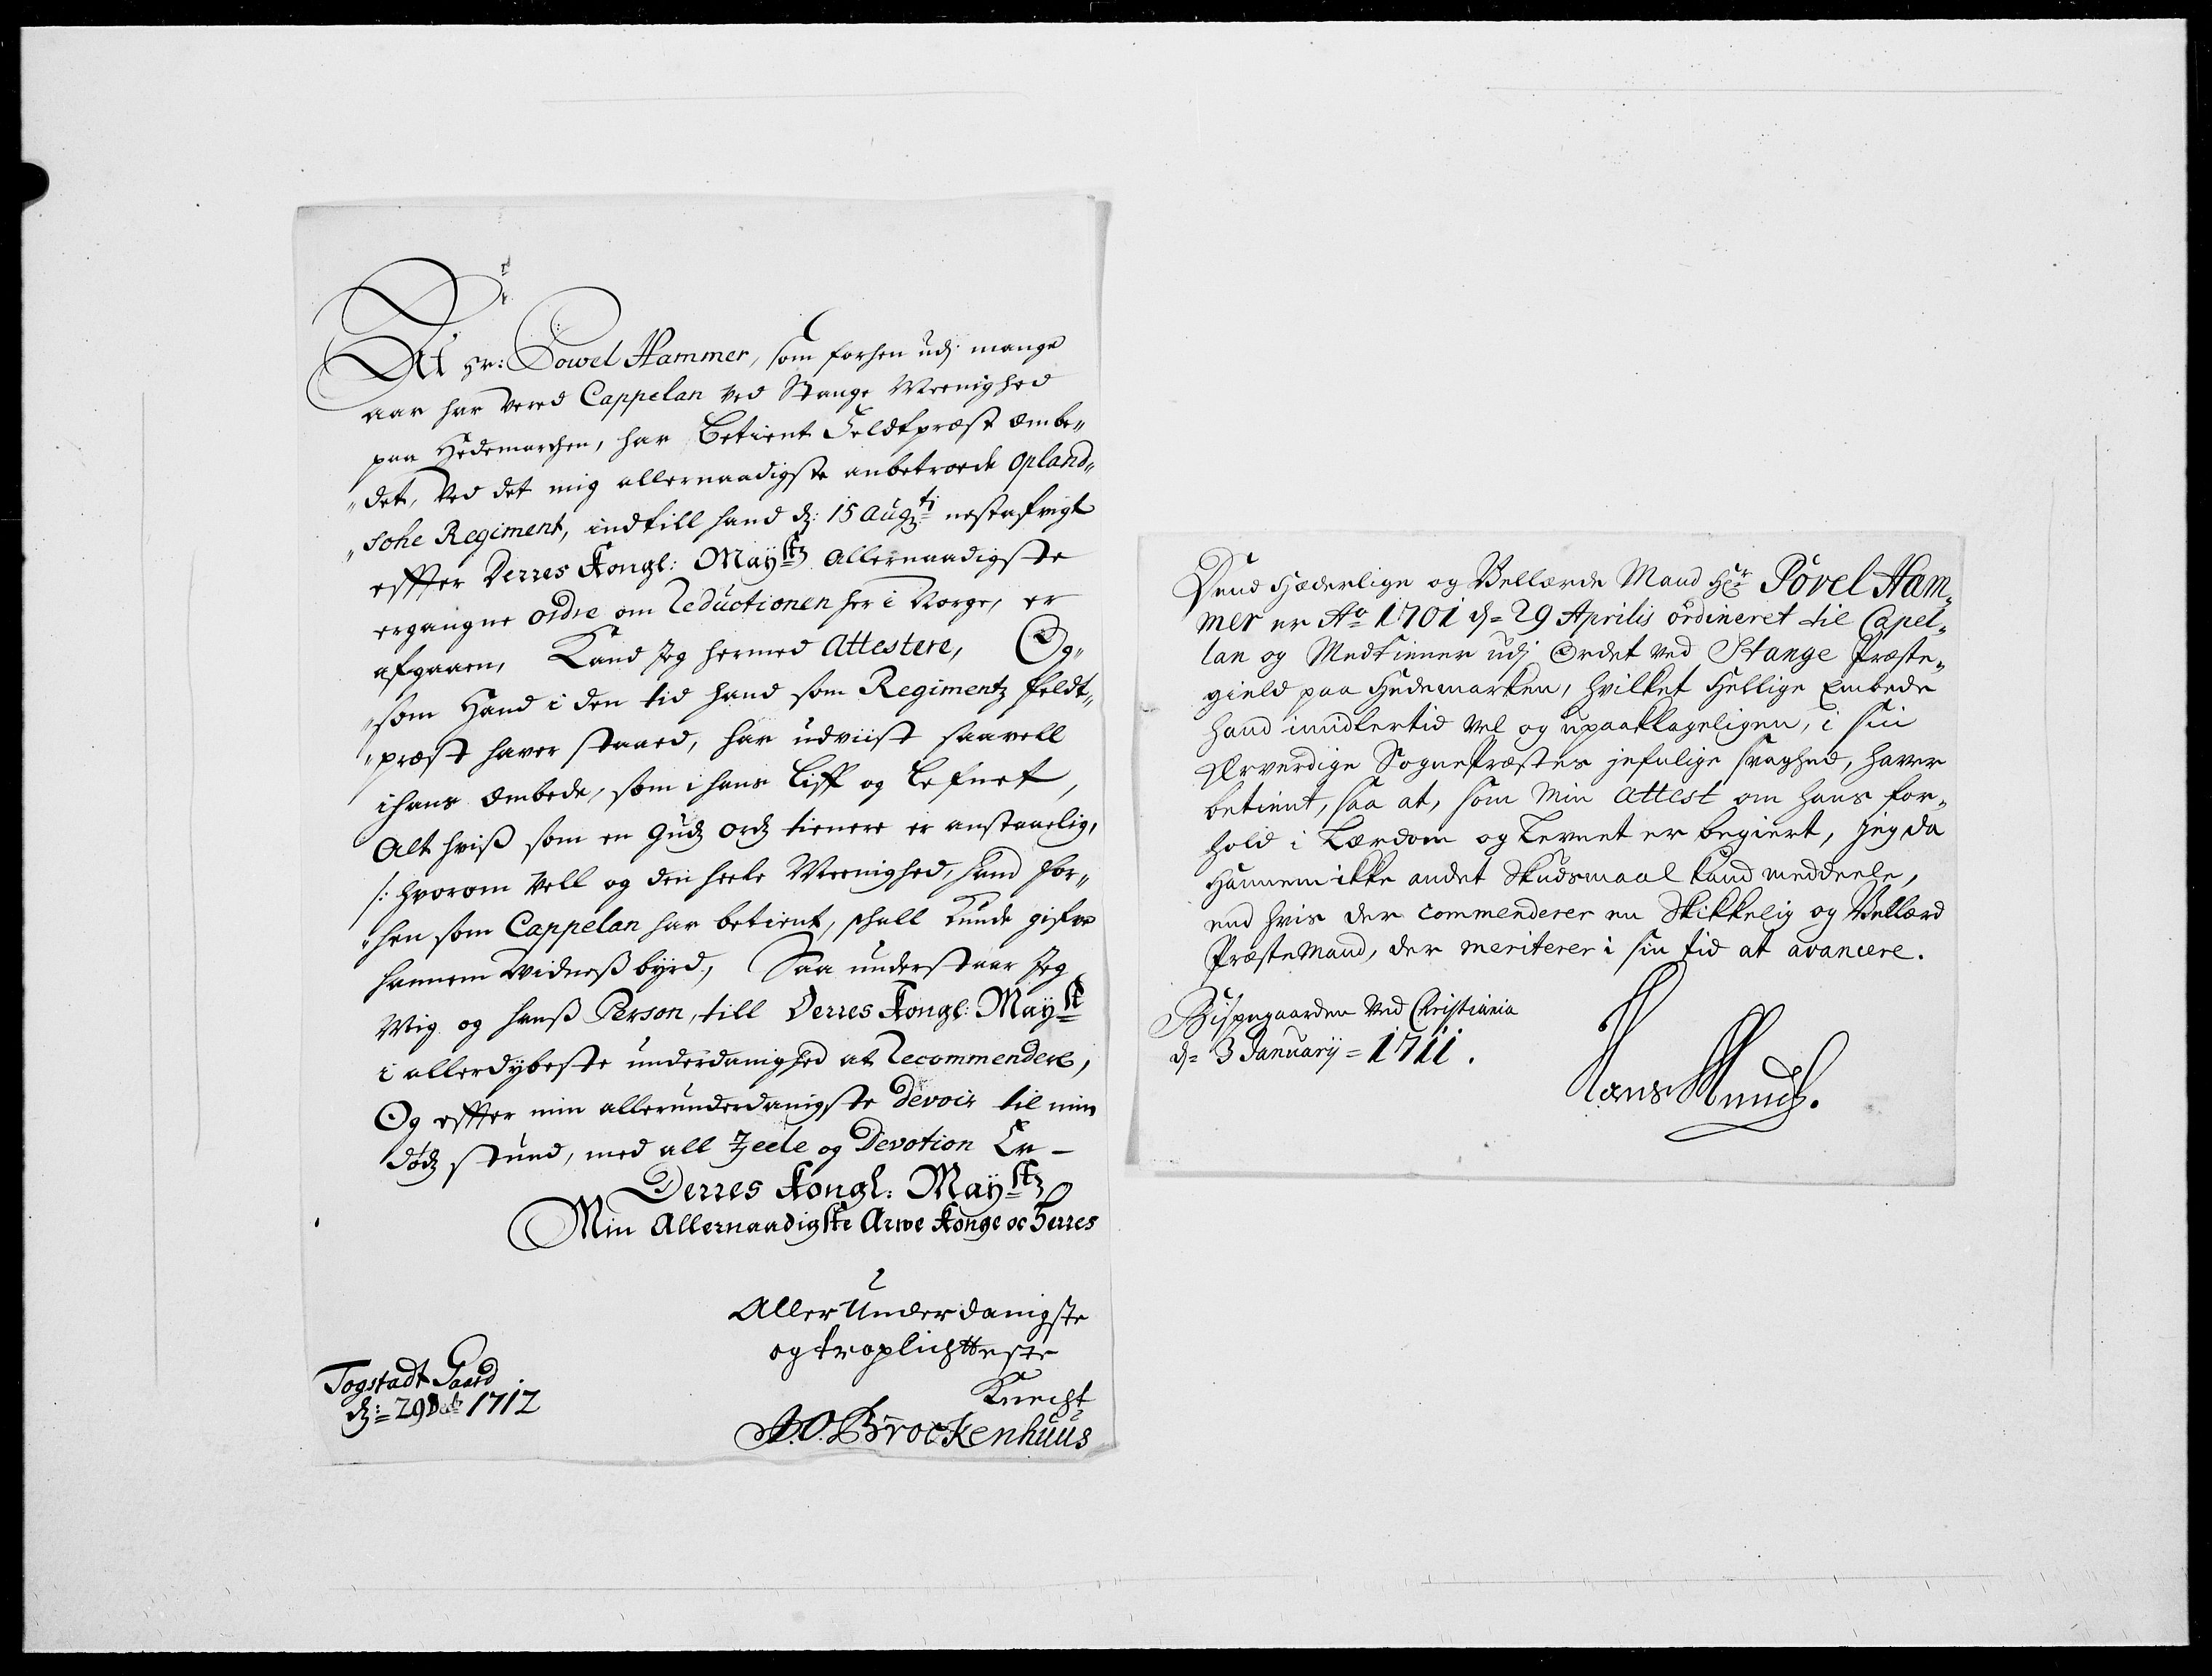 At Hr: Powel Hammer, som forhen udj mange
aar har vered Cappelan ved Stange Meenighed
paa Hedemarchen, har betient Feldtpræst Embe„
„det, ved det mig allernaadigste anbetroede Opland„
„sche Regiment, indtill hand dz: 15 Augti nestafvigt
effter Derres Kongl: Maystz Allernaadigste
ergangne ordre om Reductionen her i Norge, er
afgaaen, Kand Jeg hermed Attestere, Og„
„som Hand i den tid hand som Regimentz feldt„
„præst haver staaed, har udviist saavell
i hans Embede, som i hans Liff og Lefnet,
Alt hviß som en Gudz ordz tienere er anstaaelig,
/: hvorom vell og den heele Meenighed, hand for„
„hen som Cappelan har betient, schall kunde gifve
hannem Vidneßbyrd, Saa understaar Jeg
Mig og hanß Person, till Derres Kongl: Mayst
i allerdybeste underdanighed at Recommendere,
Og effter min allerunderdanigste devoir til min
dødz stund, med all Zeele og Devotion Er –
Derres Kongl: Maystz
Min Allernaadigste Arve Konge oc Herres
Aller Underdanigste
og troplichtteste
Knecht
Togstadt Gaard
dz: 29 Decb 1712
A.O. Brockenhuus
Dend Hæderlige og Vellærde Mand Hr Povel Ham„
mer er Ao 1701 d= 29 Aprilis ordineret til Capel„
lan og Medtiener udj Ordet ved Stange Præste„
gield paa Hedemarken, hvilket Hellige Embede
hand imidlertid vel og upaaklageligen, i sin
Ærverdige SognePræstes jefnlige svaghed, haver
betient, saa at, som min Attest om hans for„
hold i Lærdom og Levnet er begiert, jeg da
hannem ikke andet Skudsmaal kand meddeele,
end hvis der commenderer en Skikkelig og Vellærd
PræsteMand, der meriterer i sin tid at avancere.
Bispegaarden ved Christiania
d= 3 Januarij = 1711.
Hans Munch.